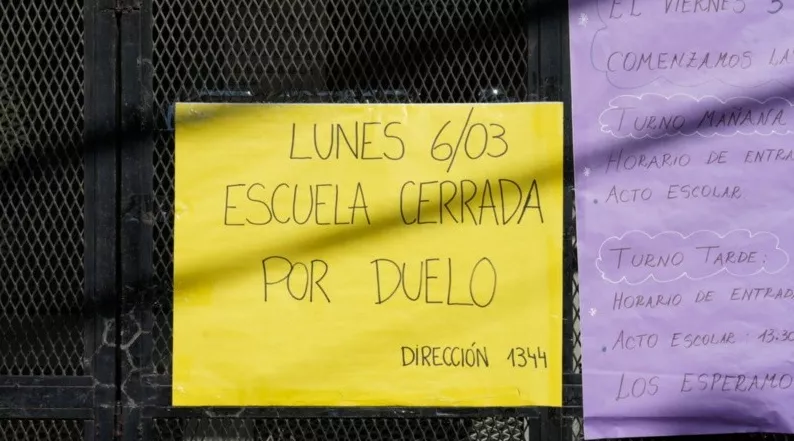 LUNES 6/03
ESCUELA CERRADA
POR DUELO
DIRECCIÓN 1344
EL VIERNES 3
COMENZAMOS LA
TURNO MAÑANA
HORARIO DE ENTRA
ACTO ESCOLAR
TURNO TARDE:
HORARIO DE ENTRAD
ACTO ESCOLAR: 13.30
LOS ESPERAMO